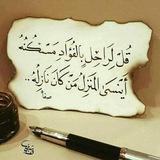 قُلْ لِرَاحِلٍ بِالْفُؤَادِ مَسْكَنُهُ
أَيَنْسَى الْمَنْزِلُ مَنْ كَانَ نَازِلُهُ..